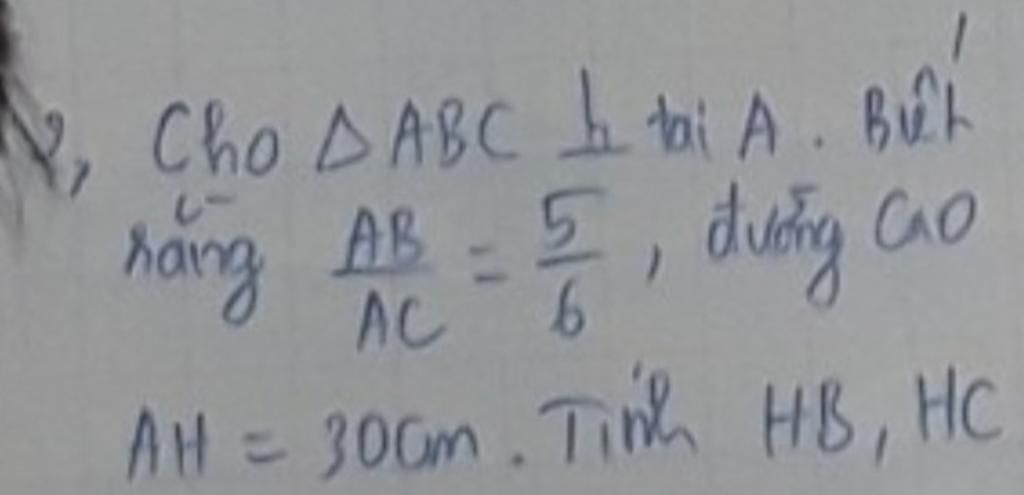 2, Cho Δ ABC ⊥ tại A. Biết
rằng AB/AC = 5/6, đường cao
AH = 30cm. Tính HB, HC